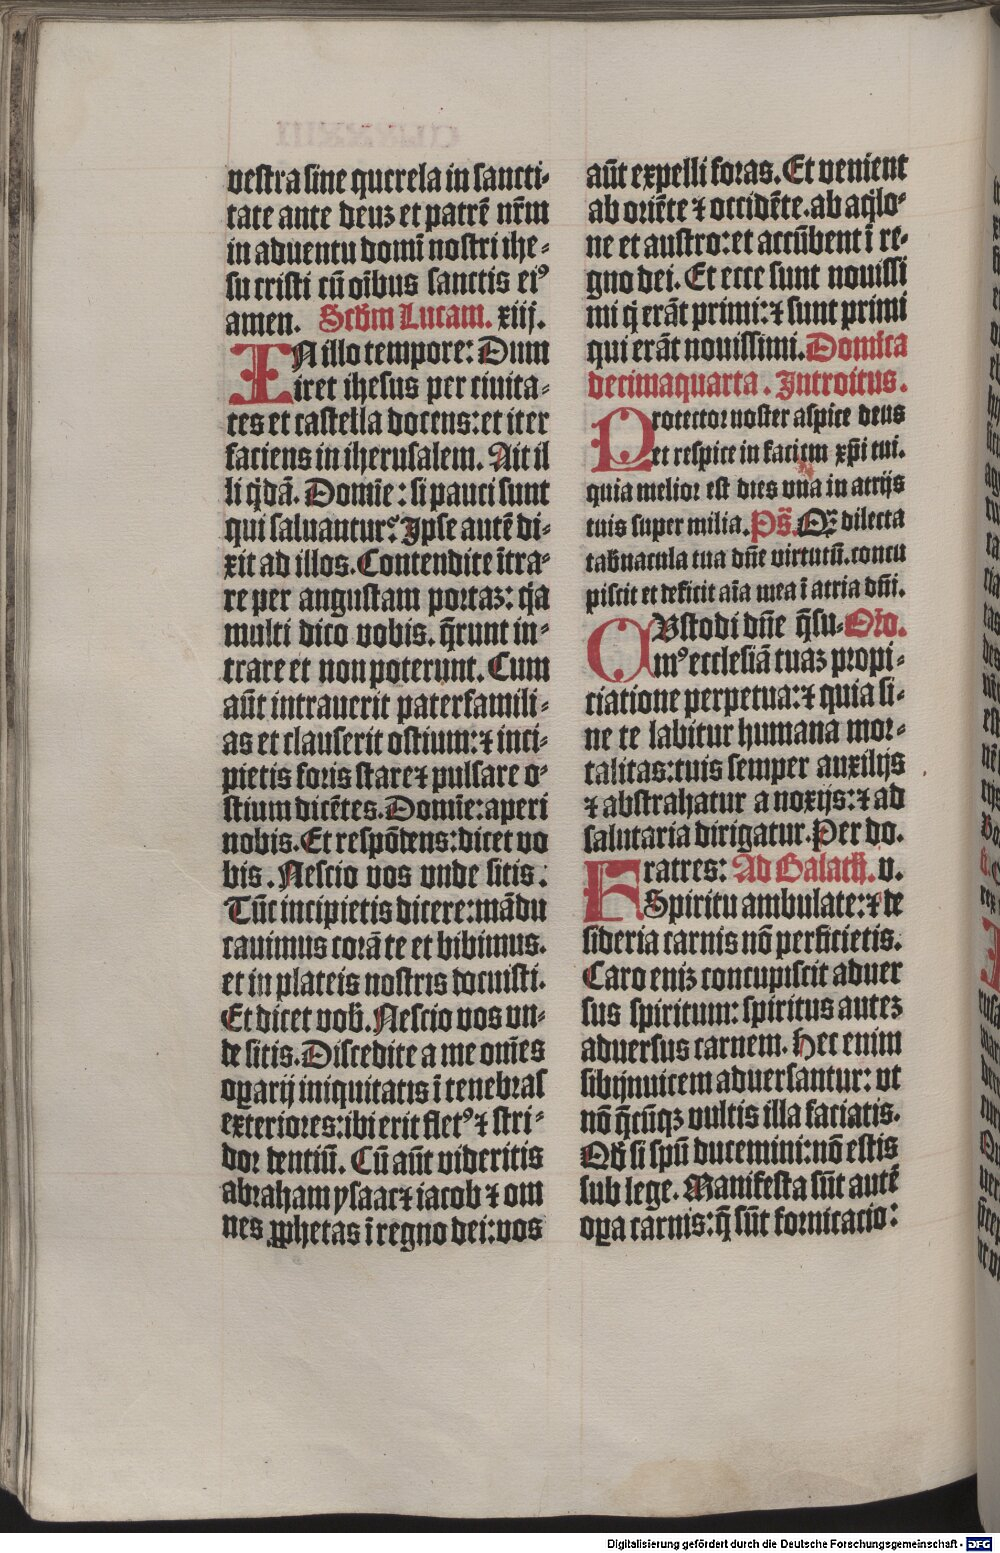 vestra sine querela in sancti-
tate ante deuz et patrē nr̄m
in aduentu domī nostri ihe-
su cristi cū oībus sanctis eiꝰ
amen. Scd̄m Lucam. xiij.
IN illo tempore: Dum
iret ihesus per ciuita-
tes et castella docens: et iter
faciens in iherusalem. Ait il
li q̇dā. Domīe: si pauci sunt
qui saluantur? Ipse autē di-
xit ad illos. Contendite ītra-
re per angustam portaz: q̇a
multi dico vobis. q̄runt in-
trare et non poterunt. Cum
aūt intrauerit paterfamili-
as et clauserit ostium: ⁊ inci-
pietis foris stare ⁊ pulsare o-
stium dicētes. Domīe: aperi
nobis. Et respōdens: dicet vo
bis. Nescio vos vnde sitis:
Tūc incipietis dicere: mādu
cauimus corā te et bibimus.
et in plateis nostris docuisti.
Et dicet vob̄. Nescio vos vn-
de sitis. Discedite a me om̄es
oꝑarij iniquitatis ī tenebras
exteriores: ibi erit fletꝰ ⁊ stri-
dor dentiū. Cū aūt videritis
abraham ysaac ⁊ iacob ⁊ om
nes ꝓphetas ī regno dei: vos
aūt expelli foras. Et venient
ab oriēte ⁊ occidēte. ab aq̇lo-
ne et austro: et accūbent ī re-
gno dei. Et ecce sunt nouissi
mi q̇ erāt primi: ⁊ sunt primi
qui erāt nouissimi. Domīca
decimaquarta. Introitus.
Protector noster aspice deus
et respice in faciem xp̄i tui.
quia melior est dies vna in atrijs
tuis super milia. Ps̄. Q̄ dilecta
tab̄nacula tua dn̄e virtutū. concu
piscit et deficit aīa mea ī atria dn̄i.
CVstodi dn̄e q̄su- Oro.
mꝰ ecclesiā tuaz propi-
ciatione perpetua: ⁊ quia si-
ne te labitur humana mor-
talitas: tuis semper auxilijs
⁊ abstrahatur a noxijs: ⁊ ad
salutaria dirigatur. Per do.
Fratres: Ad Galath̄. v.
Spiritu ambulate: ⁊ de
sideria carnis nō perficietis.
Caro eniz concupiscit aduer
sus spiritum: spiritus autez
aduersus carnem. Hec enim
sibijnuicem aduersantur: vt
nō q̄cūqz vultis illa faciatis.
Qd̄ si spū ducemini: nō estis
sub lege. Manifesta sūt autē
oꝑa carnis: q̄ sūt fornicacio:
Digitalisierung gefördert durch die Deutsche Forschungsgemeinschaft - DFG